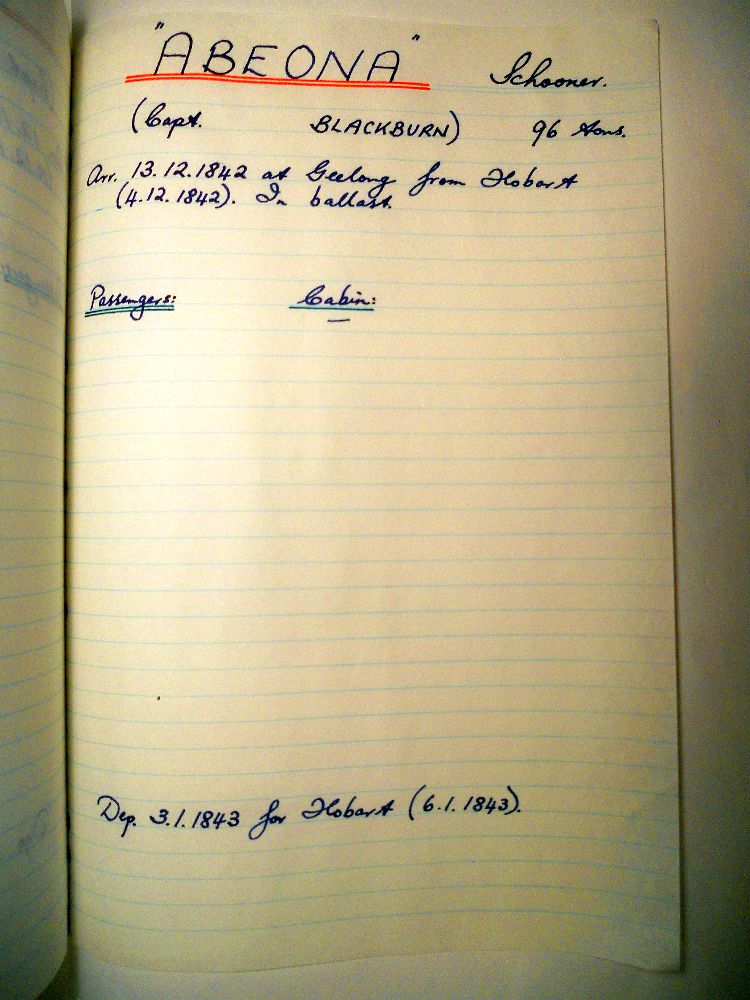 "ABEONA" Schooner.
(Capt. BLACKBURN) 96 tons.
Arr. 13.12.1842 at Geelong from Hobart
(4.12.1842). In ballast.
Passengers: Cabin:
—
Dep. 3.1.1843 for Hobart (6.1.1843).